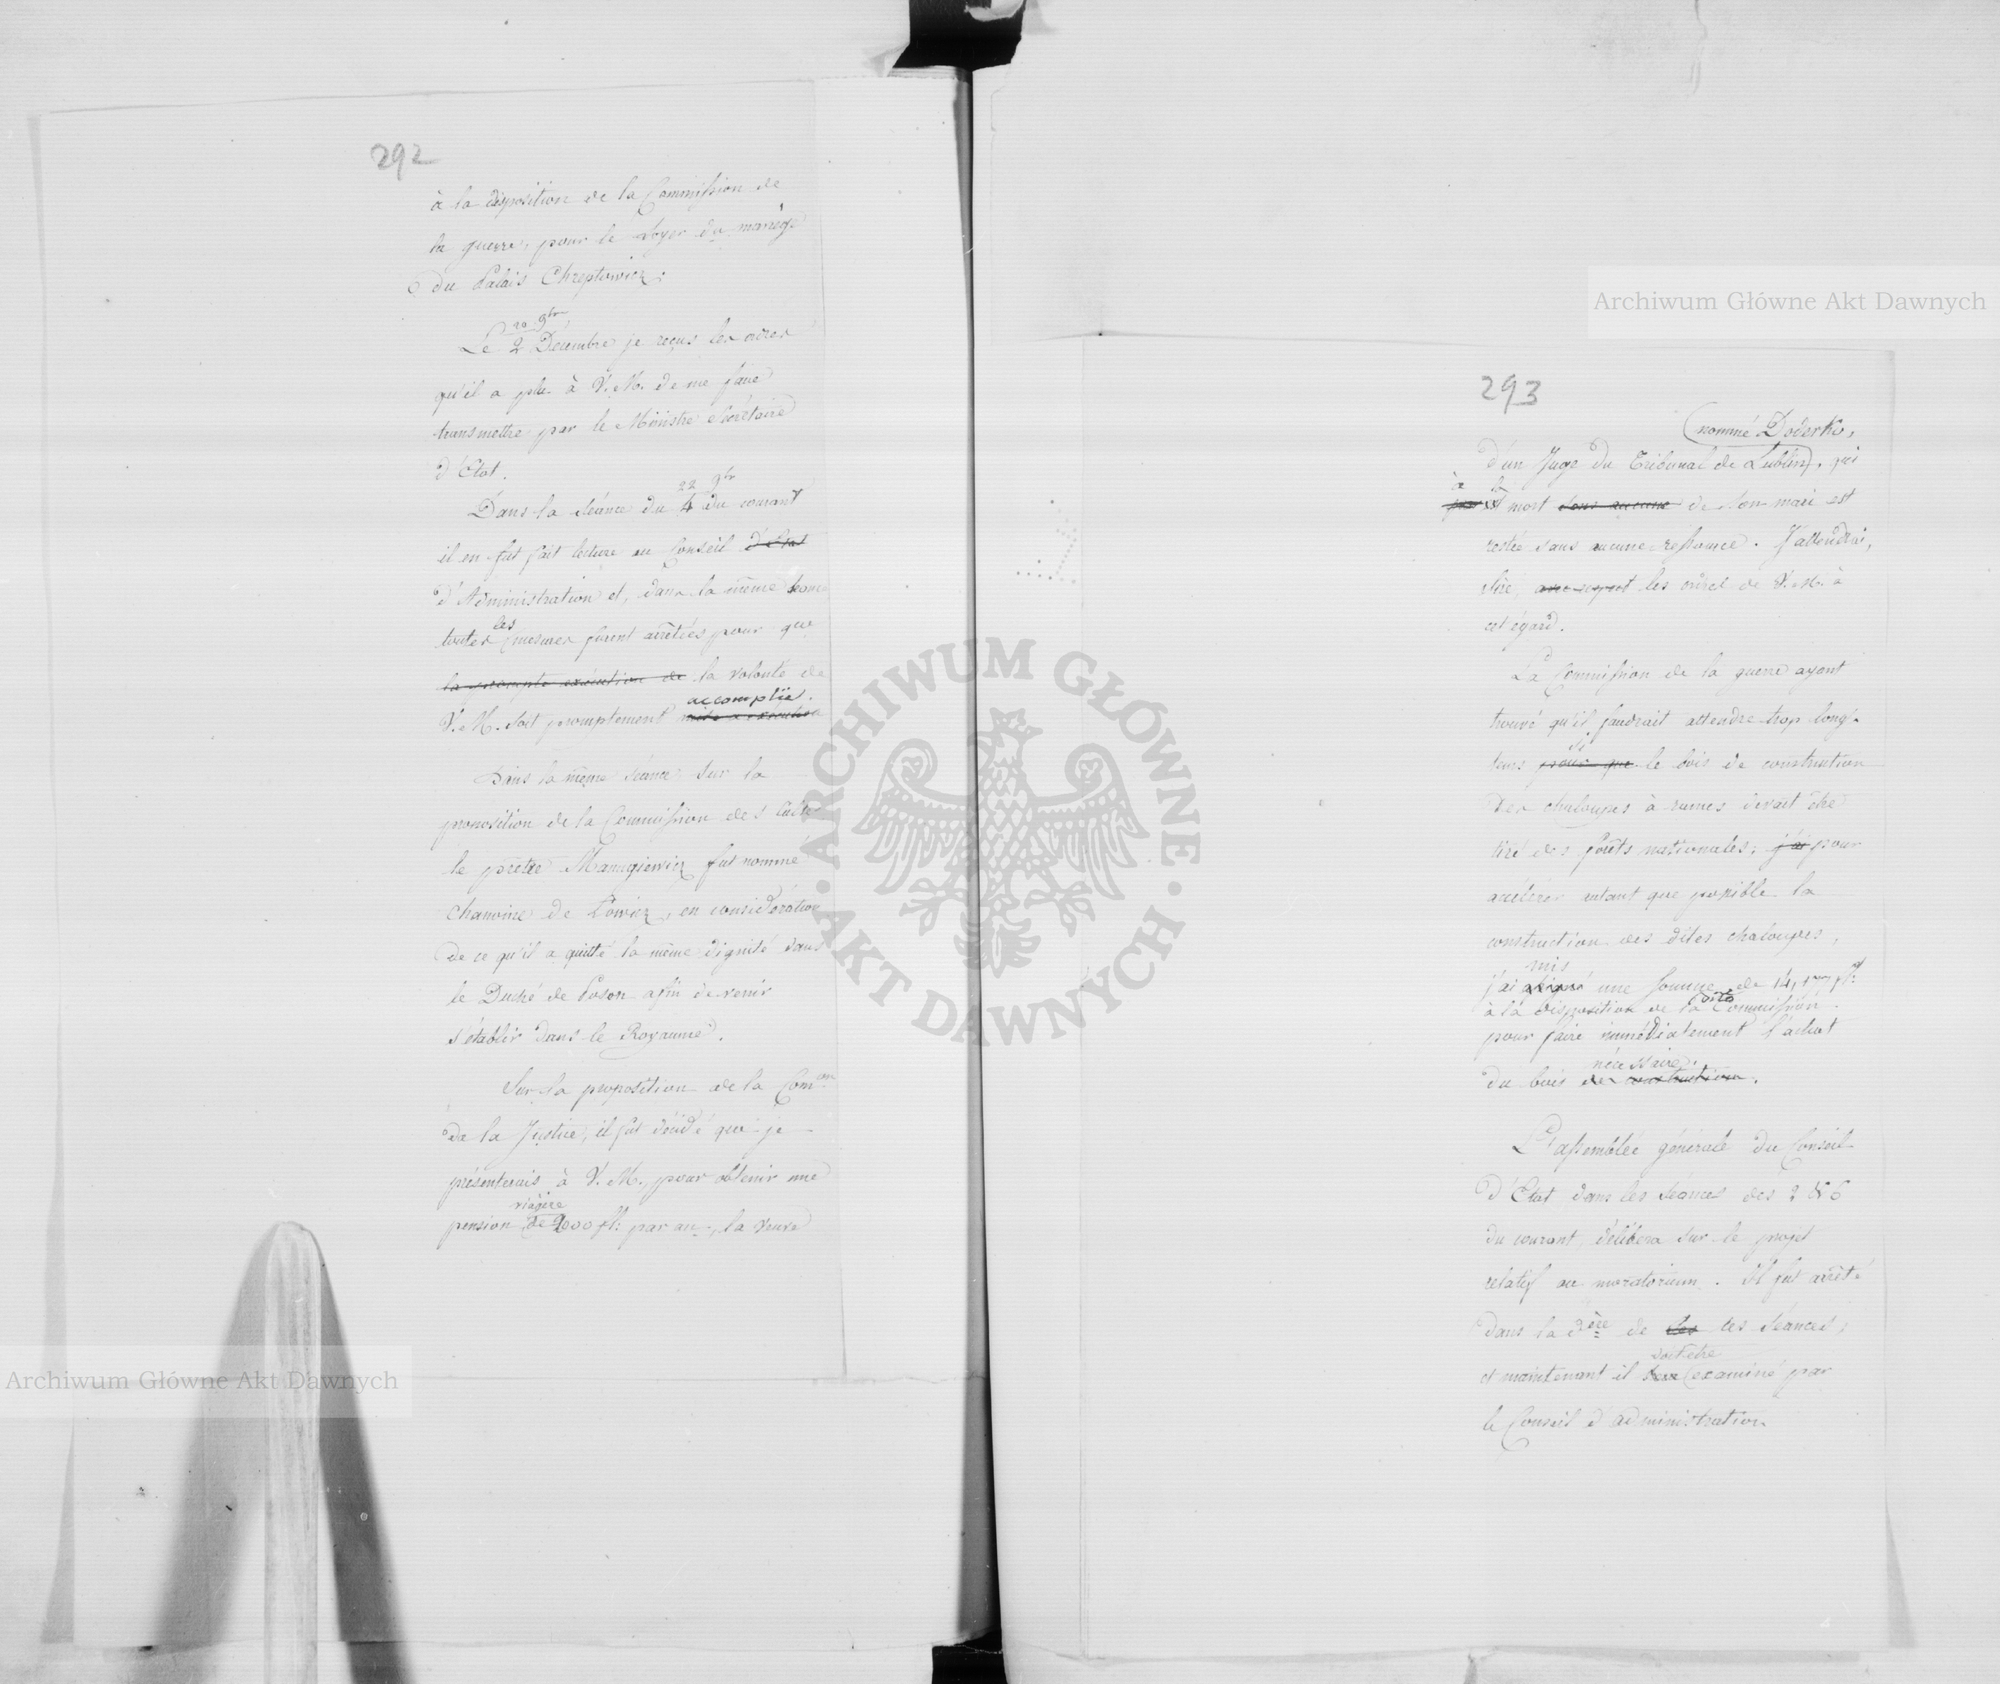 292
à la disposition de la Commission de
la guerre, pour le loyer du manège
du Palais Chreptowicz.
20 9bre
Le 2 Décembre je reçus les ordres
qu'il a plu à V. M. de me faire
transmettre par le Ministre Secrétaire
d'Etat.
22 9bre
Dans la séance du 4 du courant
il en fut fait lecture au Conseil d'Etat
d'Administration et, dans la même séance
les
toutes mesures furent arrêtées pour que
la prompte exécution de la volonté de
accomplie.
V. M. soit promptement mise a exécution
Dans la même séance sur la
proposition de la Commission des Cultes
le prêtre fut nommé
chanoine de Lowicz, en considération
de ce qu'il a quitté la même dignité dans
le Duché de Posen afin de venir
s'établir dans le Royaume.
Sur la proposition de la Comon
de la Justice, il fut décidé que je
présenterais à V. M., pour obtenir une
viagère
pension de 2000 fl: par an, la veuve
293
nommé Doderko,
d'un Juge du Tribunal de Lublin, qui
à la
mort sans aucune de son mari est
restée sans aucune ressource. J'attendrai,
Sire, avec respect les ordres de V. M. à
cet égard.
La Commission de la guerre ayant
trouvé qu'il faudrait attendre trop long-
si
tems pour que le bois de construction
des chaloupes à rames devait être
tiré des forêts nationales; j'ai pour
accélérer autant que possible la
construction des dites chaloupes,
mis
j'ai assigné une somme de fl:
dite
à la disposition de la Commission
pour faire immédiatement l'achat
nécessaire.
du bois de construction.
L'assemblée générale du Conseil
d'Etat dans les séances des 2 & 6
du courant, délibéra sur le projet
relatif au moratorium. Il fut arrêté
dans la dère de les ces séances;
doit être
et maintenant il examiné par
le Conseil d'administration
Archiwum Główne Akt Dawnych
Archiwum Główne Akt Dawnych
ARCHIWUM GŁÓWNE
AKT DAWNYCH